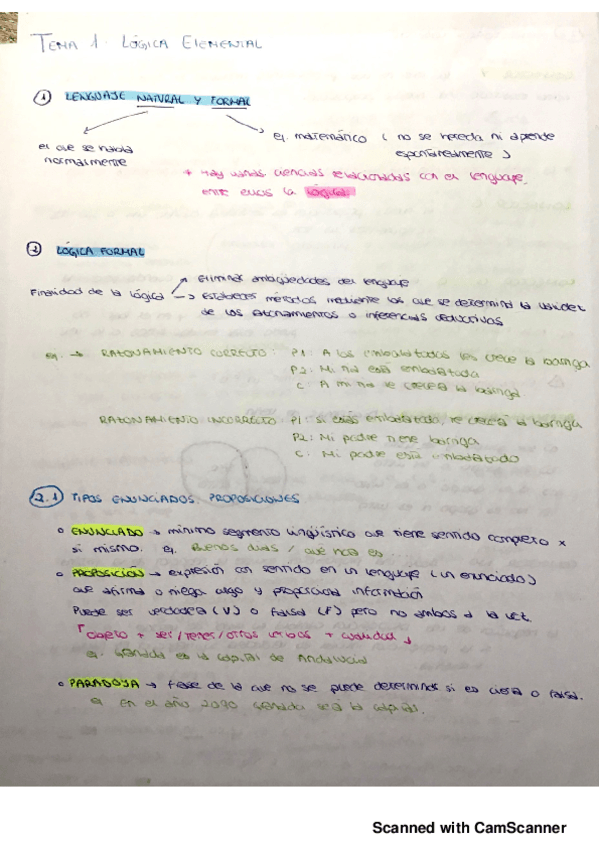 TEMA 1: LÓGICA ELEMENTAL
1 LENGUAJE NATURAL Y FORMAL
el que se habla normalmente
ej. matemático ( no se hereda ni aprende espontáneamente )
* Hay varias ciencias relacionadas con el lenguaje,
entre ellas la lógica.
2 LÓGICA FORMAL
Finalidad de la lógica
→ Eliminar ambigüedades del lenguaje
→ Establecer métodos mediante los que se determina la validez
de los razonamientos o inferencias deductivas
ej. → RAZONAMIENTO CORRECTO: P1: A las embarazadas les crece la barriga
P2: Mi está embarazada
C: A mi le crecerá la barriga
RAZONAMIENTO INCORRECTO: P1: Si estás embarazada, te crecerá la barriga
P2: Mi padre tiene barriga
C: Mi padre está embarazado
2.1 TIPOS ENUNCIADOS: PROPOSICIONES
o ENUNCIADO → mínimo segmento lingüístico que tiene sentido completo x
si mismo. ej. Buenos días / qué hora es...
o PROPOSICIÓN → expresión con sentido en un lenguaje (un enunciado)
que afirma o niega algo y proporciona información
Puede ser verdadera (V) o falsa (F) pero no ambas a la vez.
sujeto + ser/tener/otros verbos + cualidad
ej. Granada es la capital de Andalucía
o PARADOJA → frase de la que no se puede determinar si es cierta o falsa.
ej En el año 2030 Granada será la capital.
Scanned with CamScanner